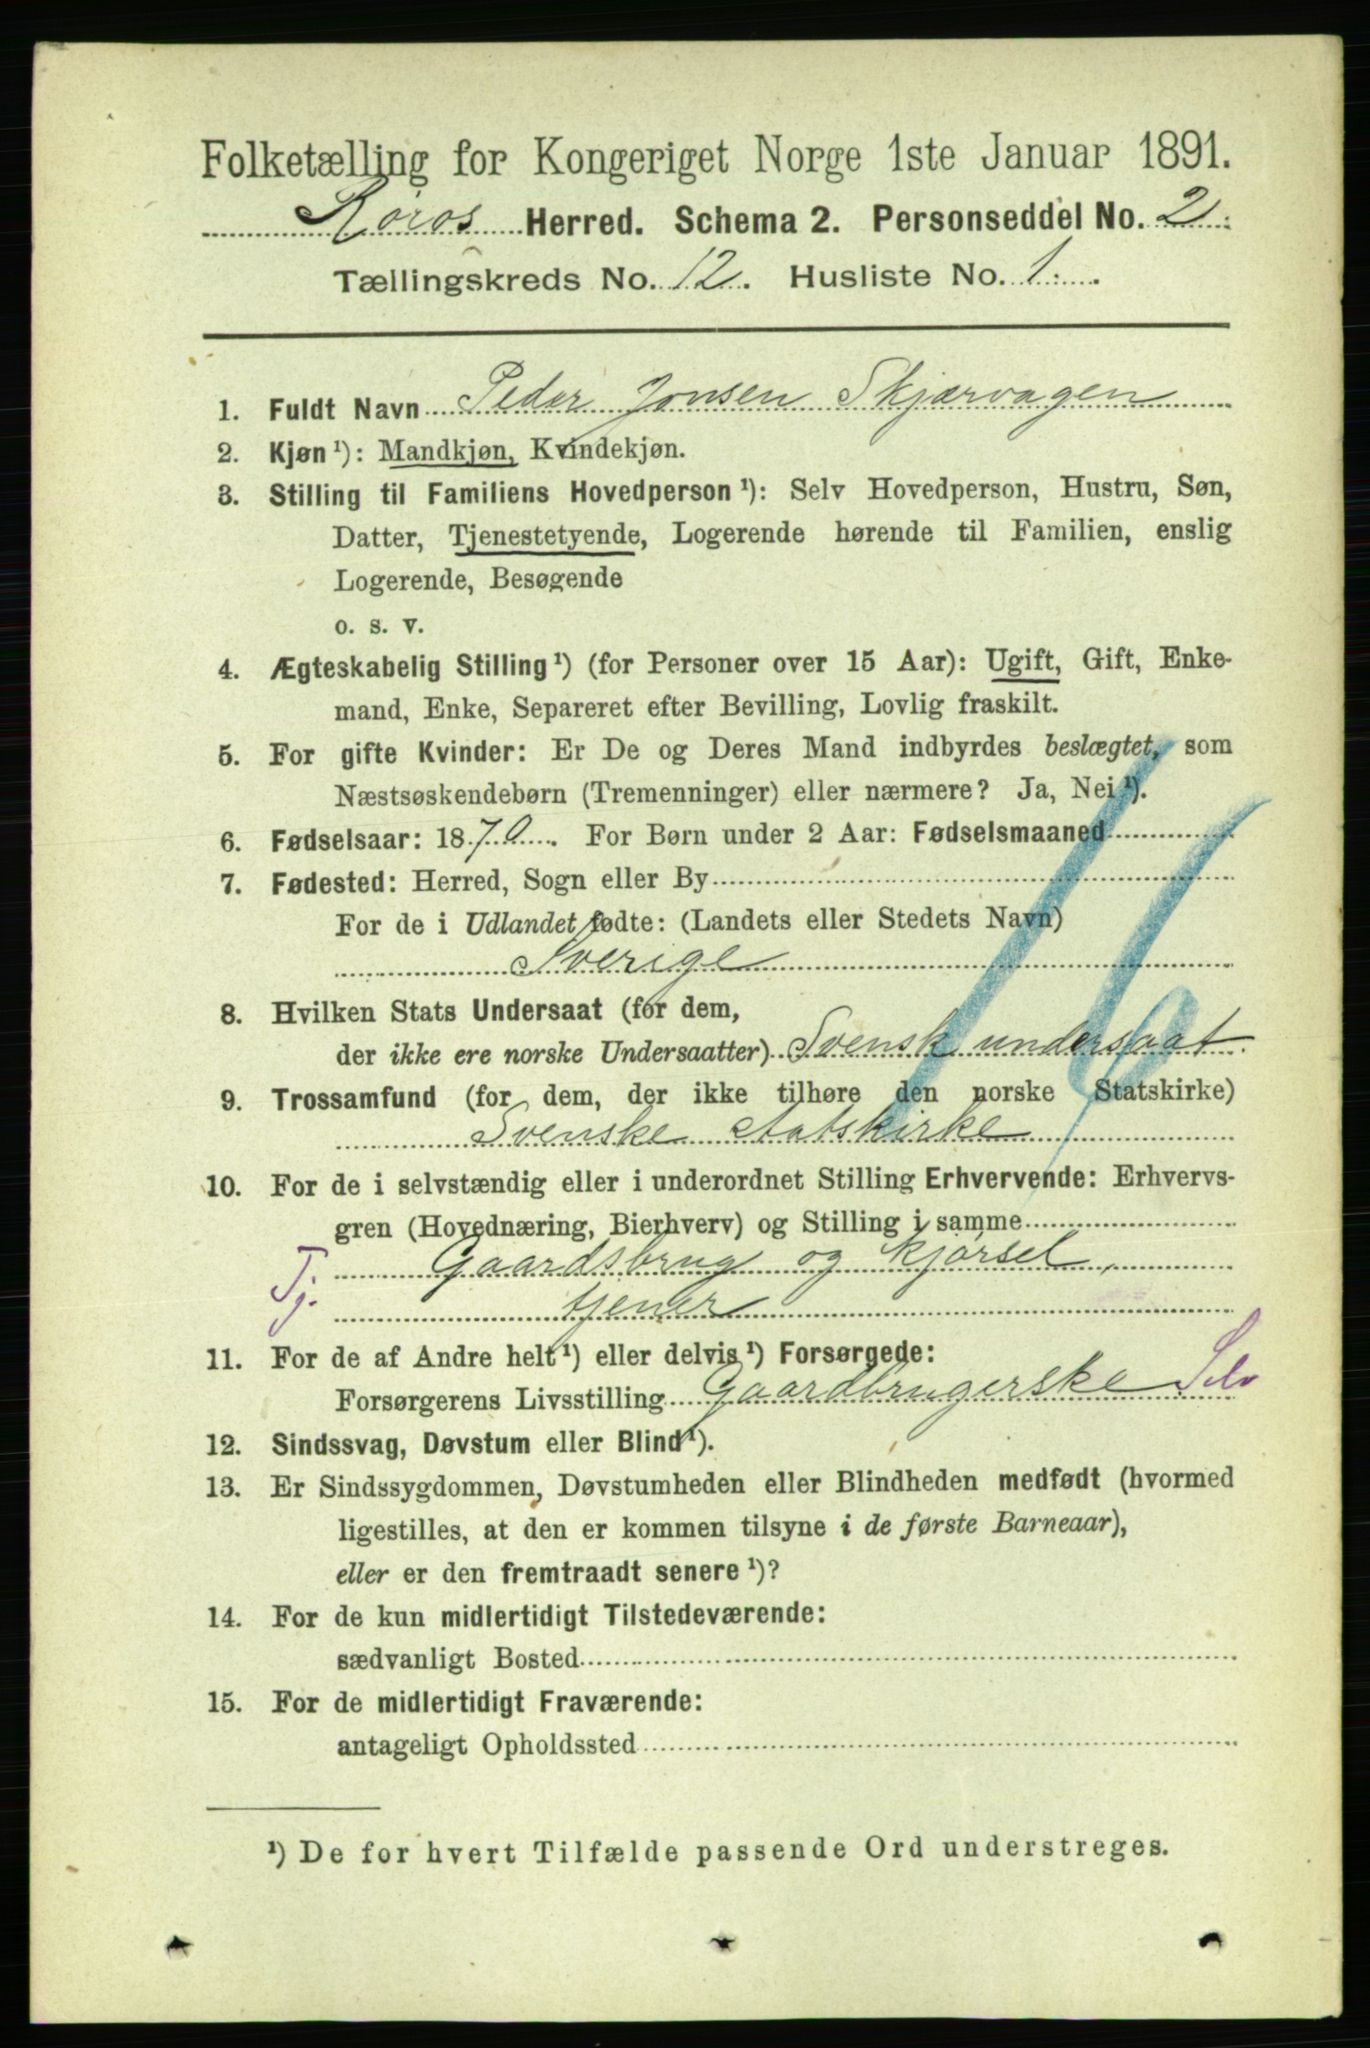 Folketælling for Kongeriget Norge 1ste Januar 1891.
Röros Herred. Schema 2. Personseddel No. 2.
Tællingskreds No. 12. Husliste No. 1.
1. Fuldt Navn Peder Jonsen Skjærvagen
2. Kjøn ¹): Mandkjøn, Kvindekjøn.
3. Stilling til Familiens Hovedperson ¹): Selv Hovedperson, Hustru, Søn,
Datter, Tjenestetyende, Logerende hørende til Familien, enslig
Logerende, Besøgende
o. s. v.
4. Ægteskabelig Stilling ¹) (for Personer over 15 Aar): Ugift, Gift, Enke-
mand, Enke, Separeret efter Bevilling, Lovlig fraskilt.
5. For gifte Kvinder: Er De og Deres Mand indbyrdes beslægtet, som
Næstsøskendebørn (Tremenninger) eller nærmere? Ja, Nei ¹).
6. Fødselsaar: 1870. For Børn under 2 Aar: Fødselsmaaned
7. Fødested: Herred, Sogn eller By
For de i Udlandet fødte: (Landets eller Stedets Navn)
Sverige
8. Hvilken Stats Undersaat (for dem,
der ikke ere norske Undersaatter) Svensk undersaat.
9. Trossamfund (for dem, der ikke tilhøre den norske Statskirke)
Svenske statskirke
10. For de i selvstændig eller i underordnet Stilling Erhvervende: Erhvervs-
gren (Hovednæring, Bierhverv) og Stilling i samme
Tj. Gaardsbrug og kjørsel,
tjener
11. For de af Andre helt ¹) eller delvis ¹) Forsørgede:
Forsørgerens Livsstilling Gaardbrugerske Selv
12. Sindssvag, Døvstum eller Blind ¹).
13. Er Sindssygdommen, Døvstumheden eller Blindheden medfødt (hvormed
ligestilles, at den er kommen tilsyne i de første Barneaar),
eller er den fremtraadt senere ¹)?
14. For de kun midlertidigt Tilstedeværende:
sædvanligt Bosted
15. For de midlertidigt Fraværende:
antageligt Opholdssted
¹) De for hvert Tilfælde passende Ord understreges.
16